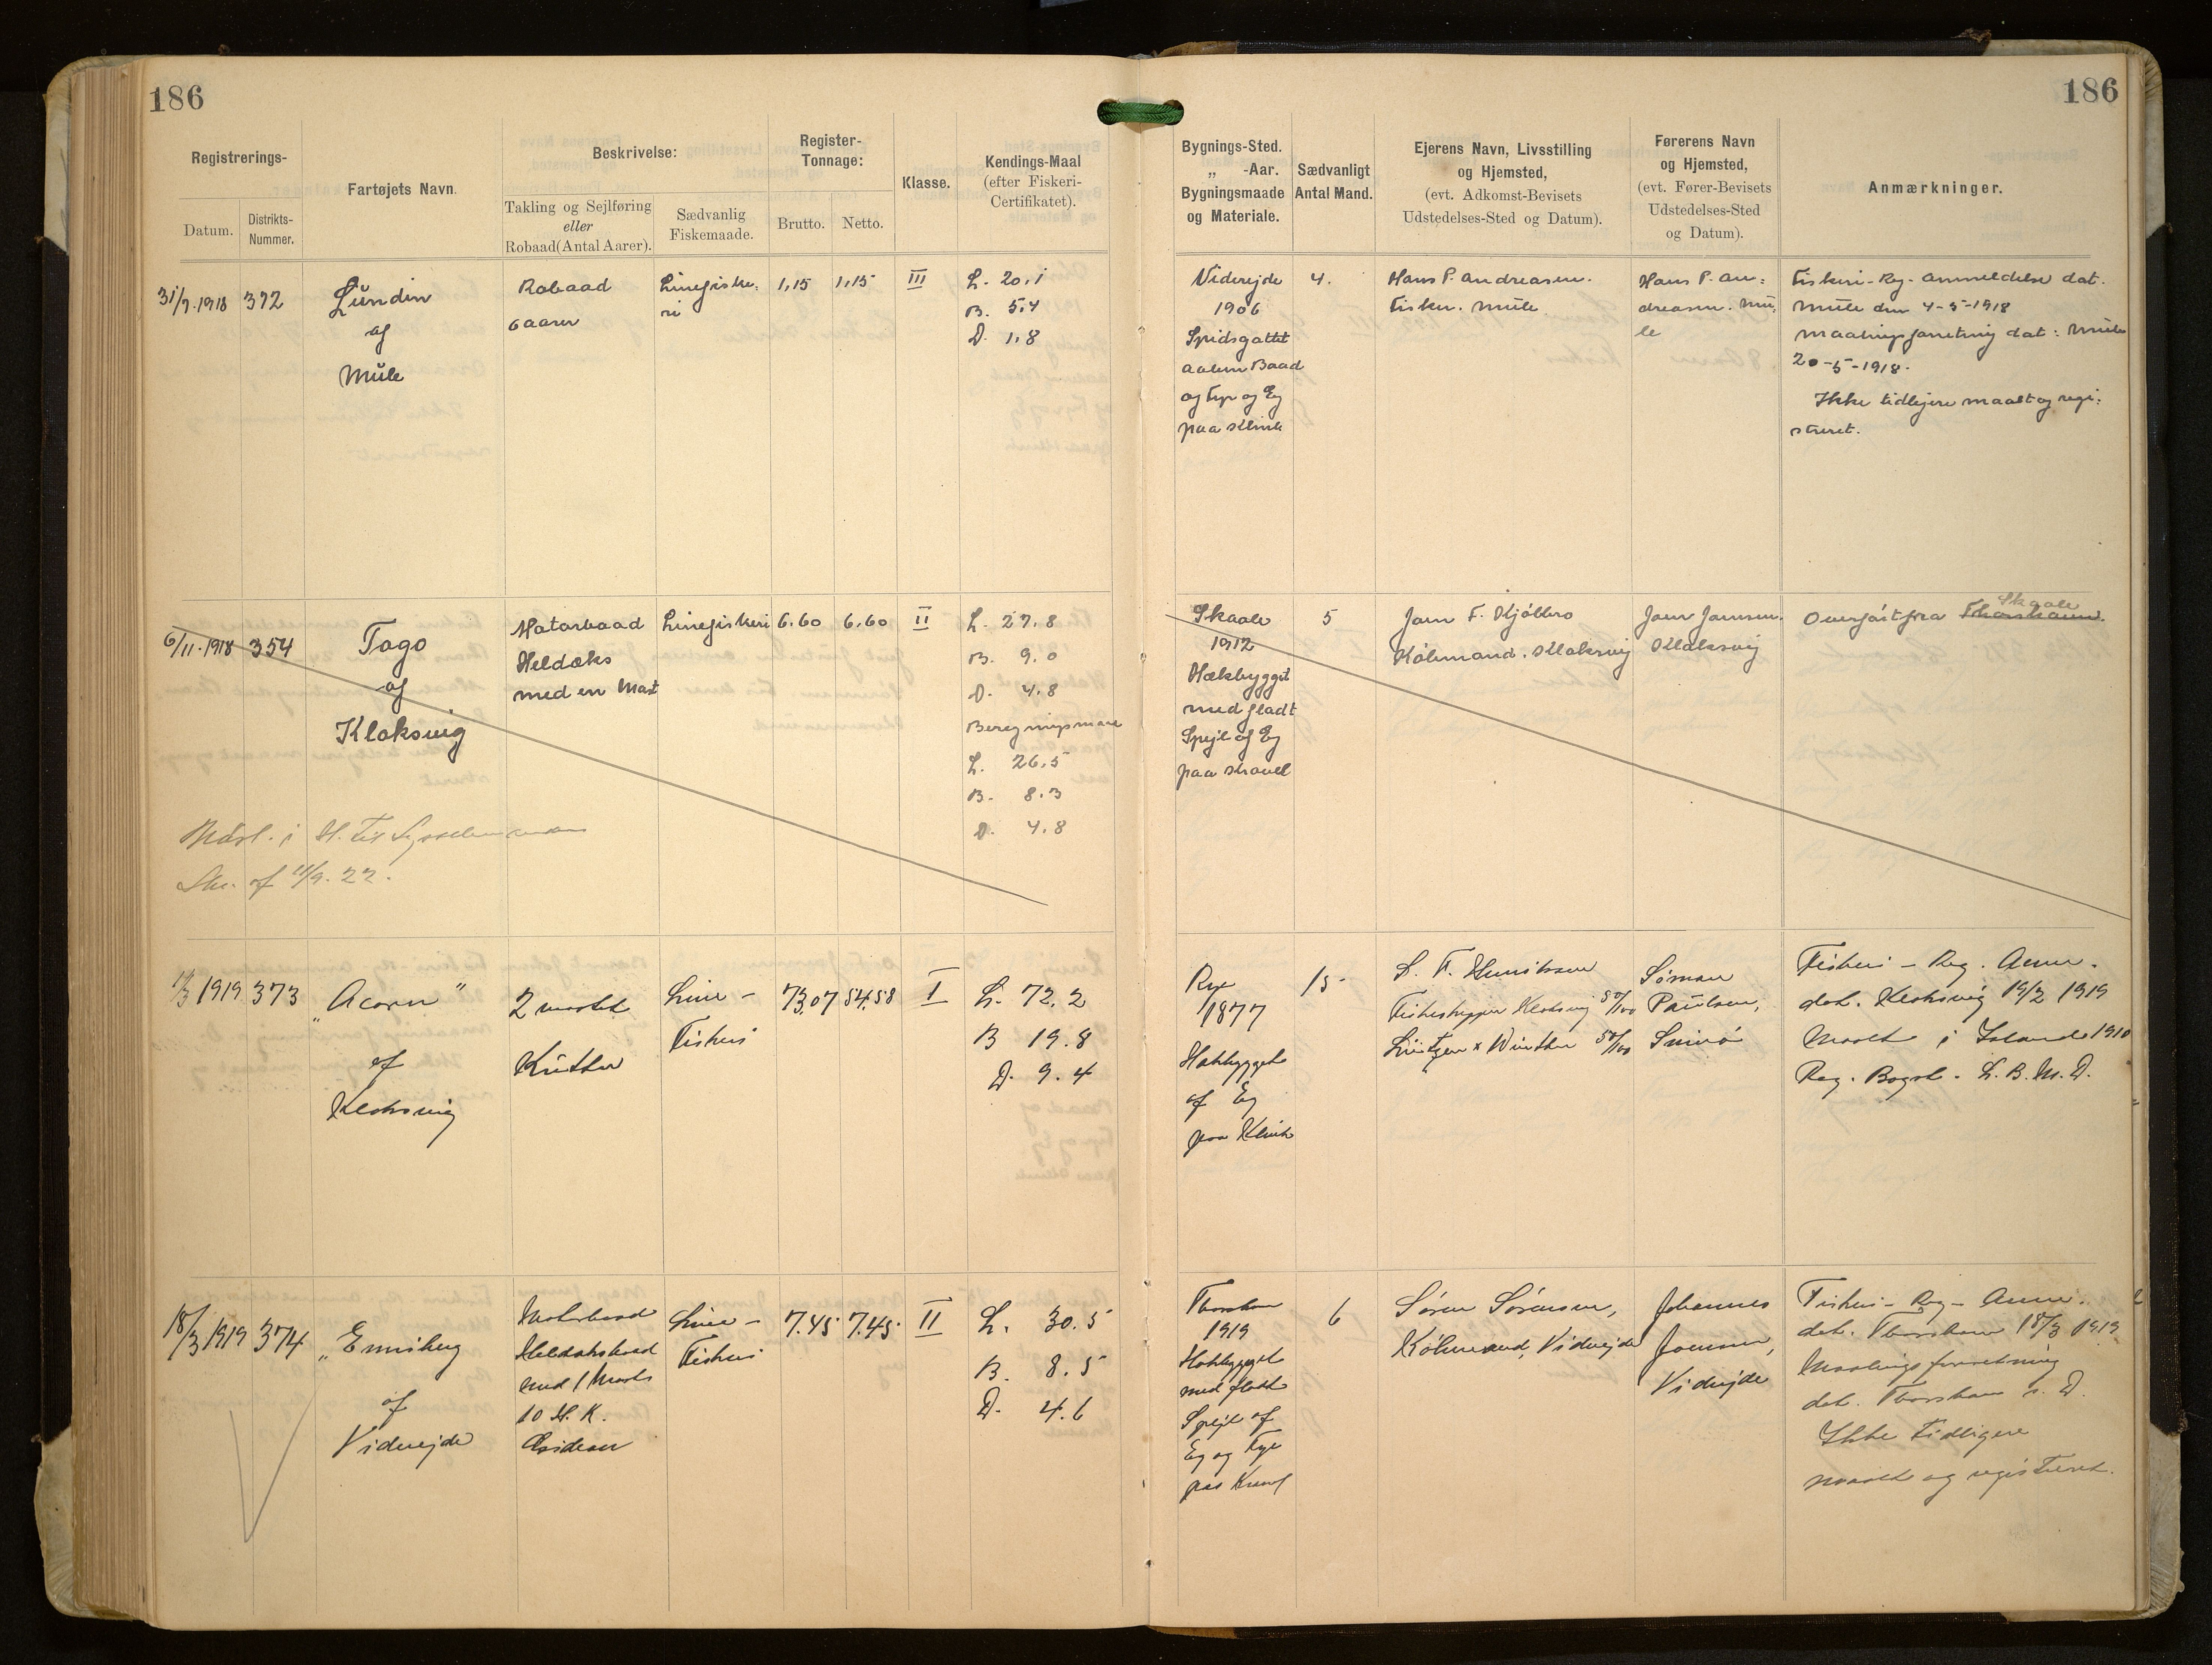 186
186
Registrerings-
Datum.
Distrikts-
Nummer.
Fartøjets Navn.
Beskrivelse:
Takling og Sejlføring
eller
Robaad(Antal Aarer).
Sædvanlig
Fiskemaade.
Register-
Tonnage:
Brutto.
Netto.
Klasse.
Kendings-Maal
(efter Fiskeri-
Certifikatet).
Bygnings-Sted.
„ -Aar.
Bygningsmaade
og Materiale.
Sædvanligt
Antal Mand.
Ejerens Navn, Livsstilling
og Hjemsted,
(evt. Adkomst-Bevisets
Udstedelses-Sted og Datum).
Førerens Navn
og Hjemsted,
(evt. Fører-Bevisets
Udstedelses-Sted
og Datum).
Anmærkninger.
31/7.1918
372
Lundin
af
Mule
Robaad
6 aarer
Linefiske-
ri
1,15
1,15
III
L. 20,1
B. 5,4
D. 1,8
Viderejde
1906
Spidsgattet
aaben Baad
af Fyr og Eg
paa Klink
4.
Hans P. Andreasen.
Fisker. Mule
Hans P. An-
dreasen. Mu-
le
Fiskeri-Reg-anmeldelse dat.
Mule den 4-5-1918
Maalingsforretning dat: Mule
20-5-1918.
Ikke tidligere maalt og regi-
streret.
6/11.1918
354
Tago
af
Klaksvig
Motorbaad
Heldæks
med en Mast
Linefiskeri
6.60
6.60
II
L. 27.8
B. 9.0
D. 4.8
L. 26.5
B. 8.3
D. 4.8
Skaale
1912
Hækbygget
med fladt
Spejl af Eg
paa Kravel
5
F. Kjølbro
Købmand. Klaksvig
Klaksvig
Overført fra Thorshavn.
Skaale
Skr. af 11/9.22.
11/3 1919
373
„Acorn"
af
Klaksvig
2 mastet
Kutter
Line-
Fiskeri
73,07
54,58
I
L. 72,2
B 19.8
D. 9.4
Rye
1877
Hækbygget
af Eg
paa Klink
15-
Fiskeskipper Klaksvig 50/100
Lützen & Winther 50/100
Paulsen,
Svinø
Fiskeri-Reg. Anm.
dat. Klaksvig 19/2 1919
Maalt i Island 1910
L. B. M. D.
18/3 1919
374
„Enniberg
af
Viderejde
Motorbaad
Heldæksbaad
med 1 Mast
10 H. K.
Line-
Fiskeri
7.45
7.45
II
L. 30.5
B. 8.5
D. 4.6
Thorshavn
1919
Hækbygget
med fladt
Spejl af
Eg og Fyr
paa Kravel
6
Søren Sørensen,
Købmand, Viderejde
Johannes
Joensen,
Viderejde
Fiskeri-Reg-Anm.
dat. Thorshavn 18/3 1919
Maalingsforretning
dat. Thorshavn s. D.
Ikke tidligere
maalt og registreret.